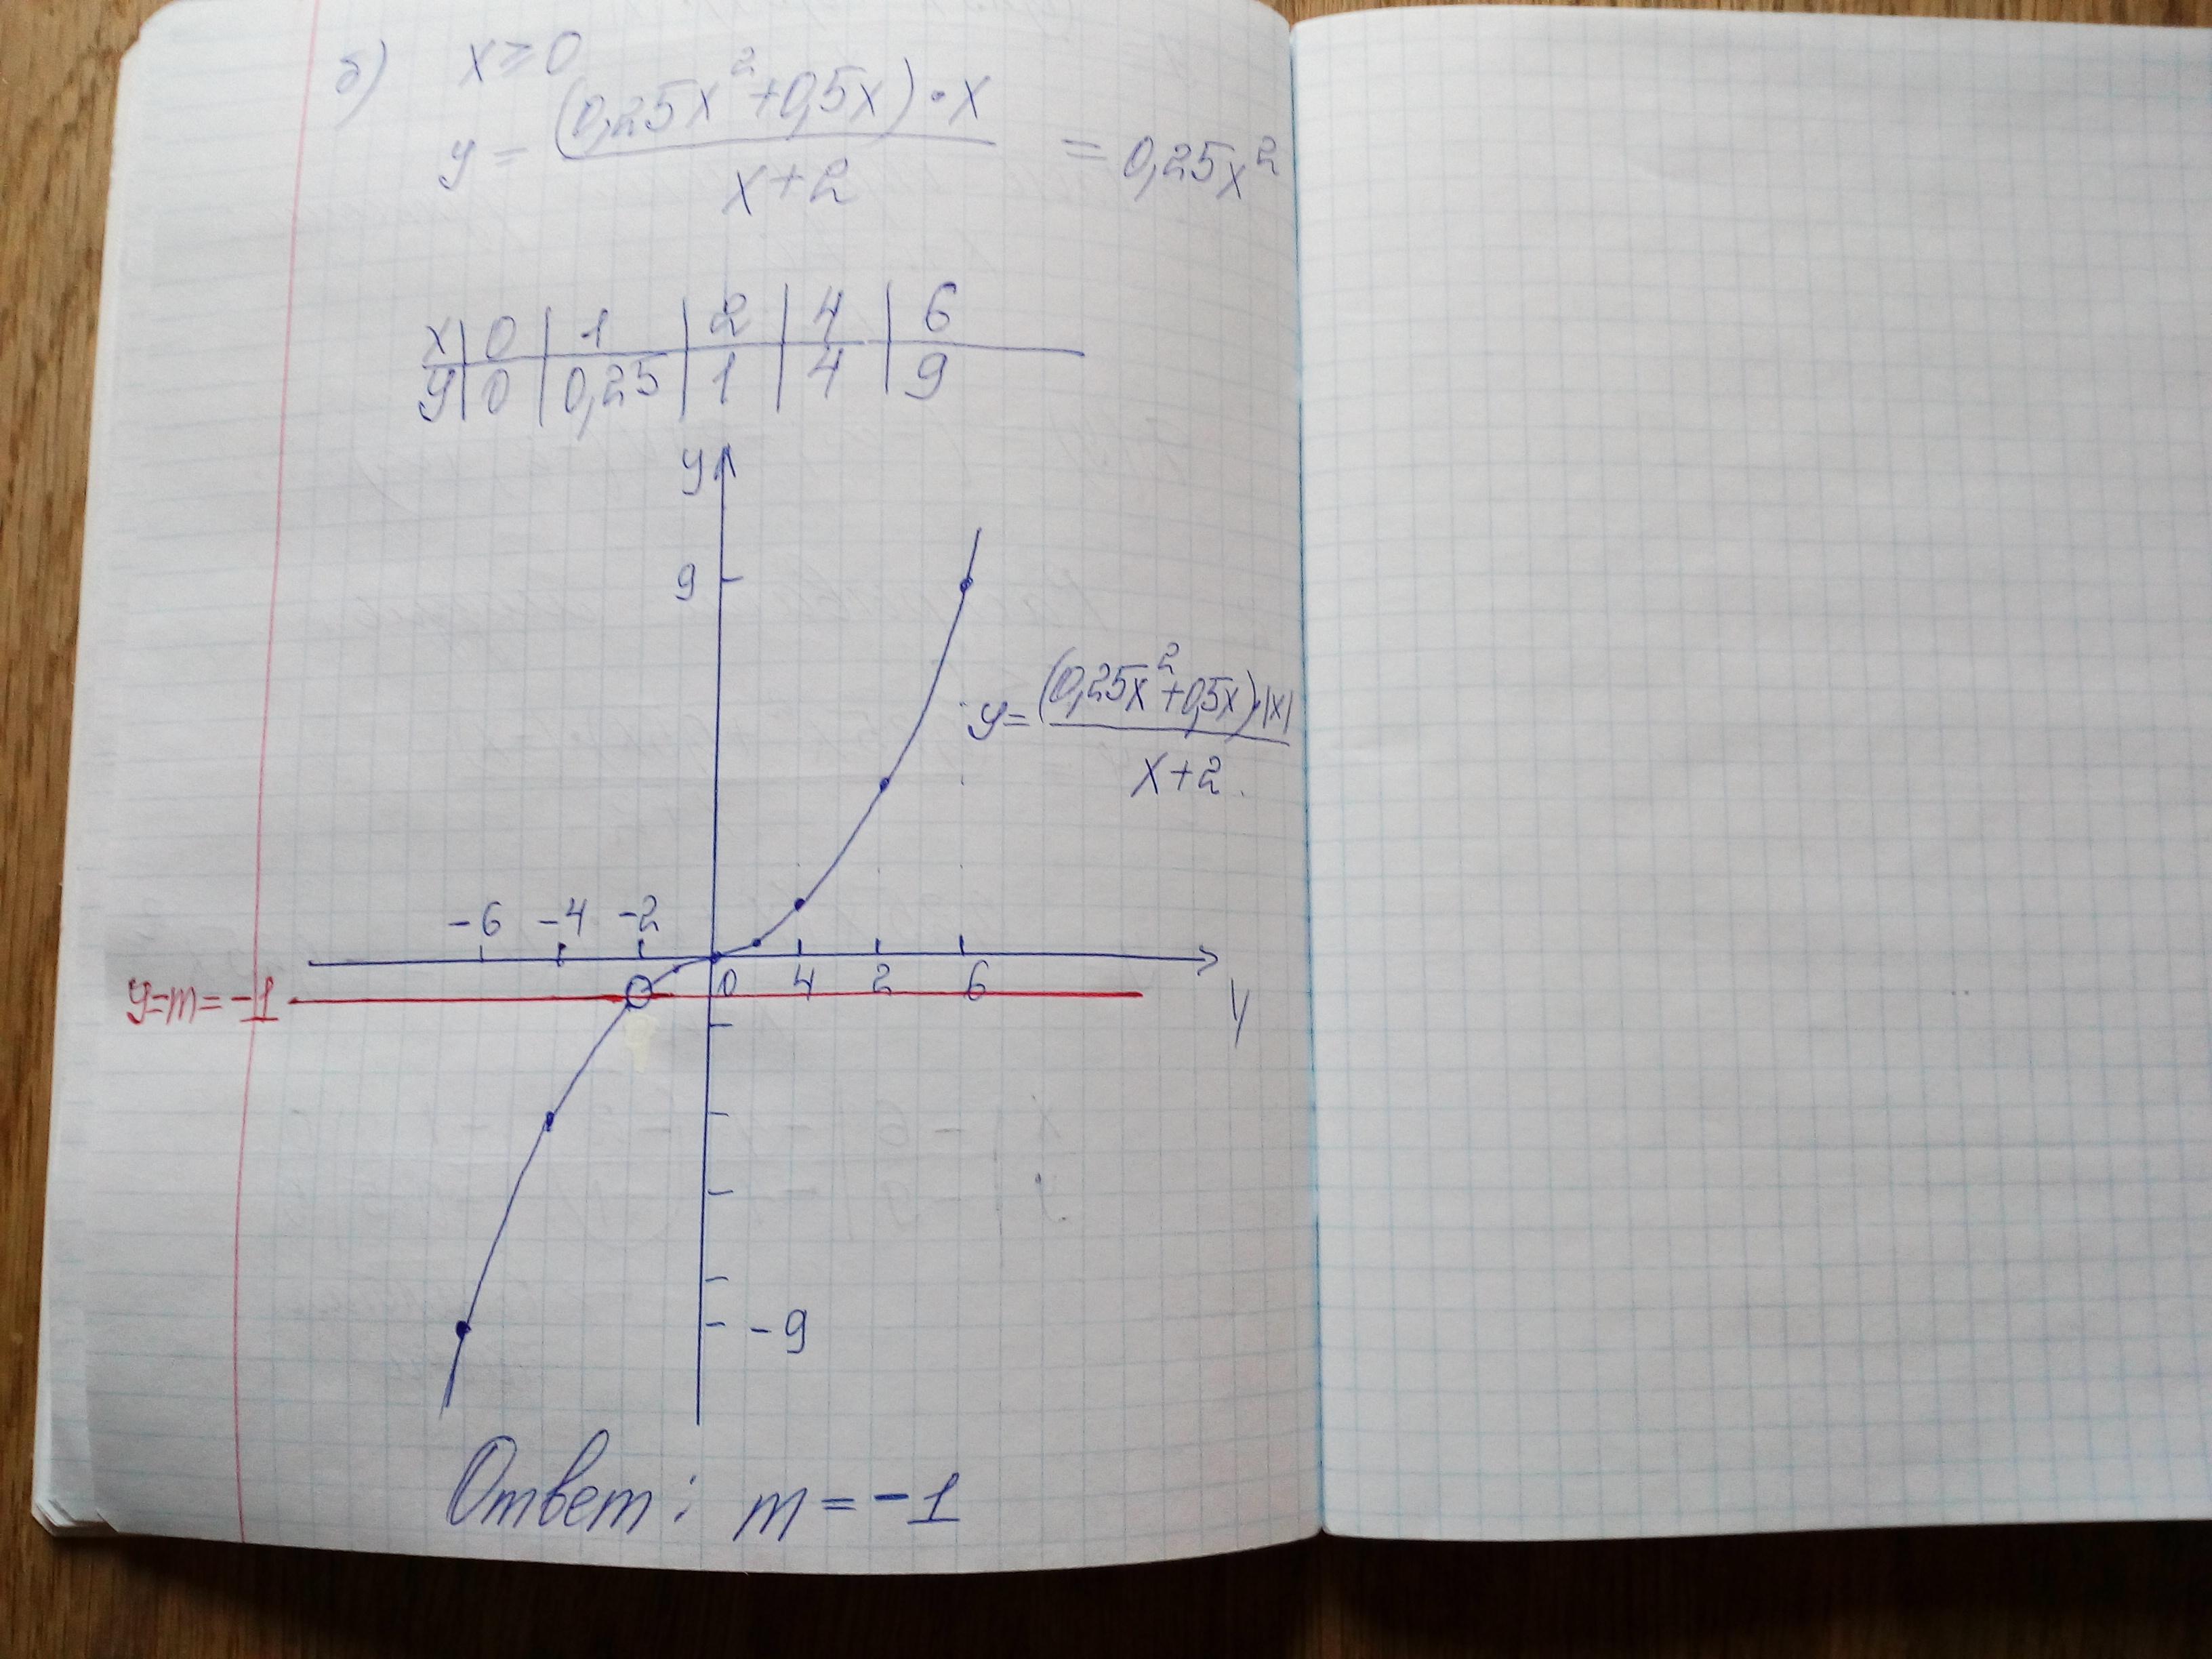 б) x ≥ 0
y = (0,25x²+0,5x)·x / x+2 = 0,25x²
x | 0 | 1 | 2 | 4 | 6
y | 0 | 0,25 | 1 | 4 | 9
y
9
y= (0,25x²+0,5x)·|x| / x+2.
-6 -4 -2
0 4 2 6
y=m=-1
-9
Ответ: m = -1